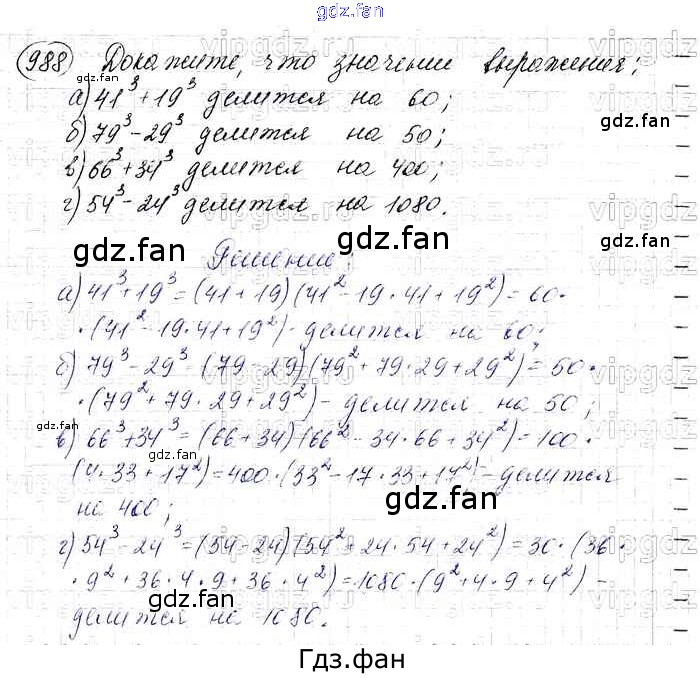 gdz.fan
988 Докажите, что значение выражения:
а) 41³+19³ делится на 60;
б) 79³-29³ делится на 50;
в) 66³+34³ делится на 400;
г) 54³-24³ делится на 1080.
Решение:
а) 41³+19³=(41+19)(41²-19·41+19²)=60·
·(41²-19·41+19²)- делится на 60;
б) 79³-29³=(79-29)(79²+79·29+29²)=50·
·(79²+79·29+29²)- делится на 50;
в) 66³+34³=(66+34)(66²-34·66+34²)=100·
(4·33+17²)=400·(33²-17·33+17²)- делится
на 400;
г) 54³-24³=(54-24)(54²+24·54+24²)=30·(36·
·9²+36·4·9+36·4²)=1080·(9²+4·9+4²)-
делится на 1080.
Гдз.фан